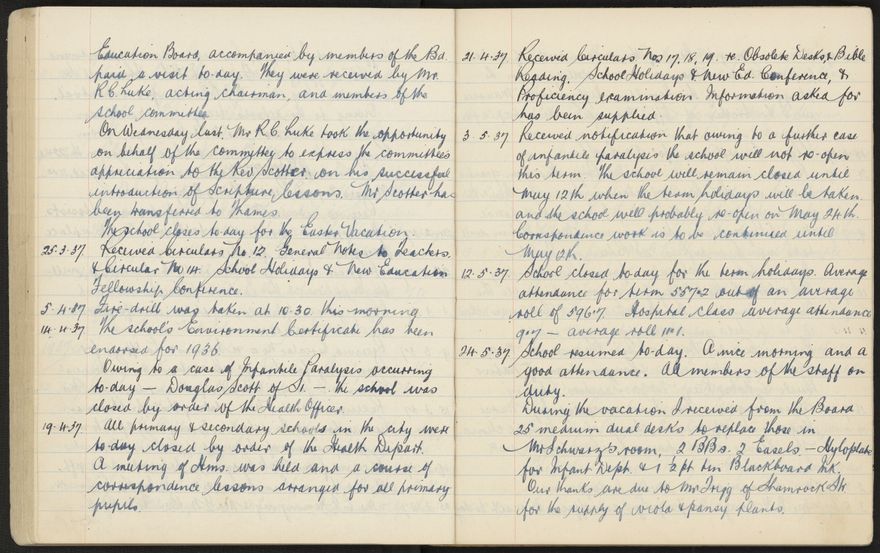 Education Board, accompanied by members of the Bd.
paid a visit to-day. They were received by Mr.
R C Luke, acting chairman, and members of the
school committee.
On Wednesday last, Mr R. C. Luke took the opportunity
on behalf of the committee to express the committee's
appreciation to the Rev Scotter on his successful
introduction of Scripture lessons. Mr Scotter has
been transferred to Thames.
The school closes to-day for the Easter Vacation.
25.3.37 Received Circulars No. 12 General Notes to Teachers.
& Circular No 14. School Holidays & New Education
Fellowship Conference.
5.4.37 Fire-drill was taken at 10.30 this morning
14.4.37 The school's Environment Certificate has been
endorsed for 1936
Owing to a case of Infantile Paralysis occurring
to-day — Douglas Scott of S1. — the school was
closed by order of the Health Officer.
19.4.37 All primary & secondary schools in the city were
to-day closed by order of the Health Depart.
A meeting of Hms. was held and a course of
correspondence lessons arranged for all primary
pupils.
21.4.37 Received Circulars Nos 17, 18, 19. re. Obsolete Desks, & Bible
Reading. School Holidays & New Ed. Conference, &
Proficiency examination. Information asked for
has been supplied
3.5.37 Received notification that owing to a further case
of infantile paralysis the school will not re-open
this term. The school will remain closed until
May 12th when the term holidays will be taken
and the school will probably re-open on May 24th.
Correspondence work is to be continued until
May 12th.
12.5.37 School closed to-day for the term holidays. Average
attendance for term 557.2 out of an average
roll of 596.7. Hospital class average attendance
9.7 — average roll 11.1.
24.5.37 School resumed to-day. A nice morning and a
good attendance. All members of the staff on
duty.
During the vacation I received from the Board
25 medium dual desks to replace those in
Mr Schwarz's room, 2 BBs. 2 Easels — Hyloplate
for Infant Dept. & 1 ½ pt tin Blackboard Ink.
Our thanks are due to Mr Trigg of Shamrock Str
for the supply of viola & pansy plants.